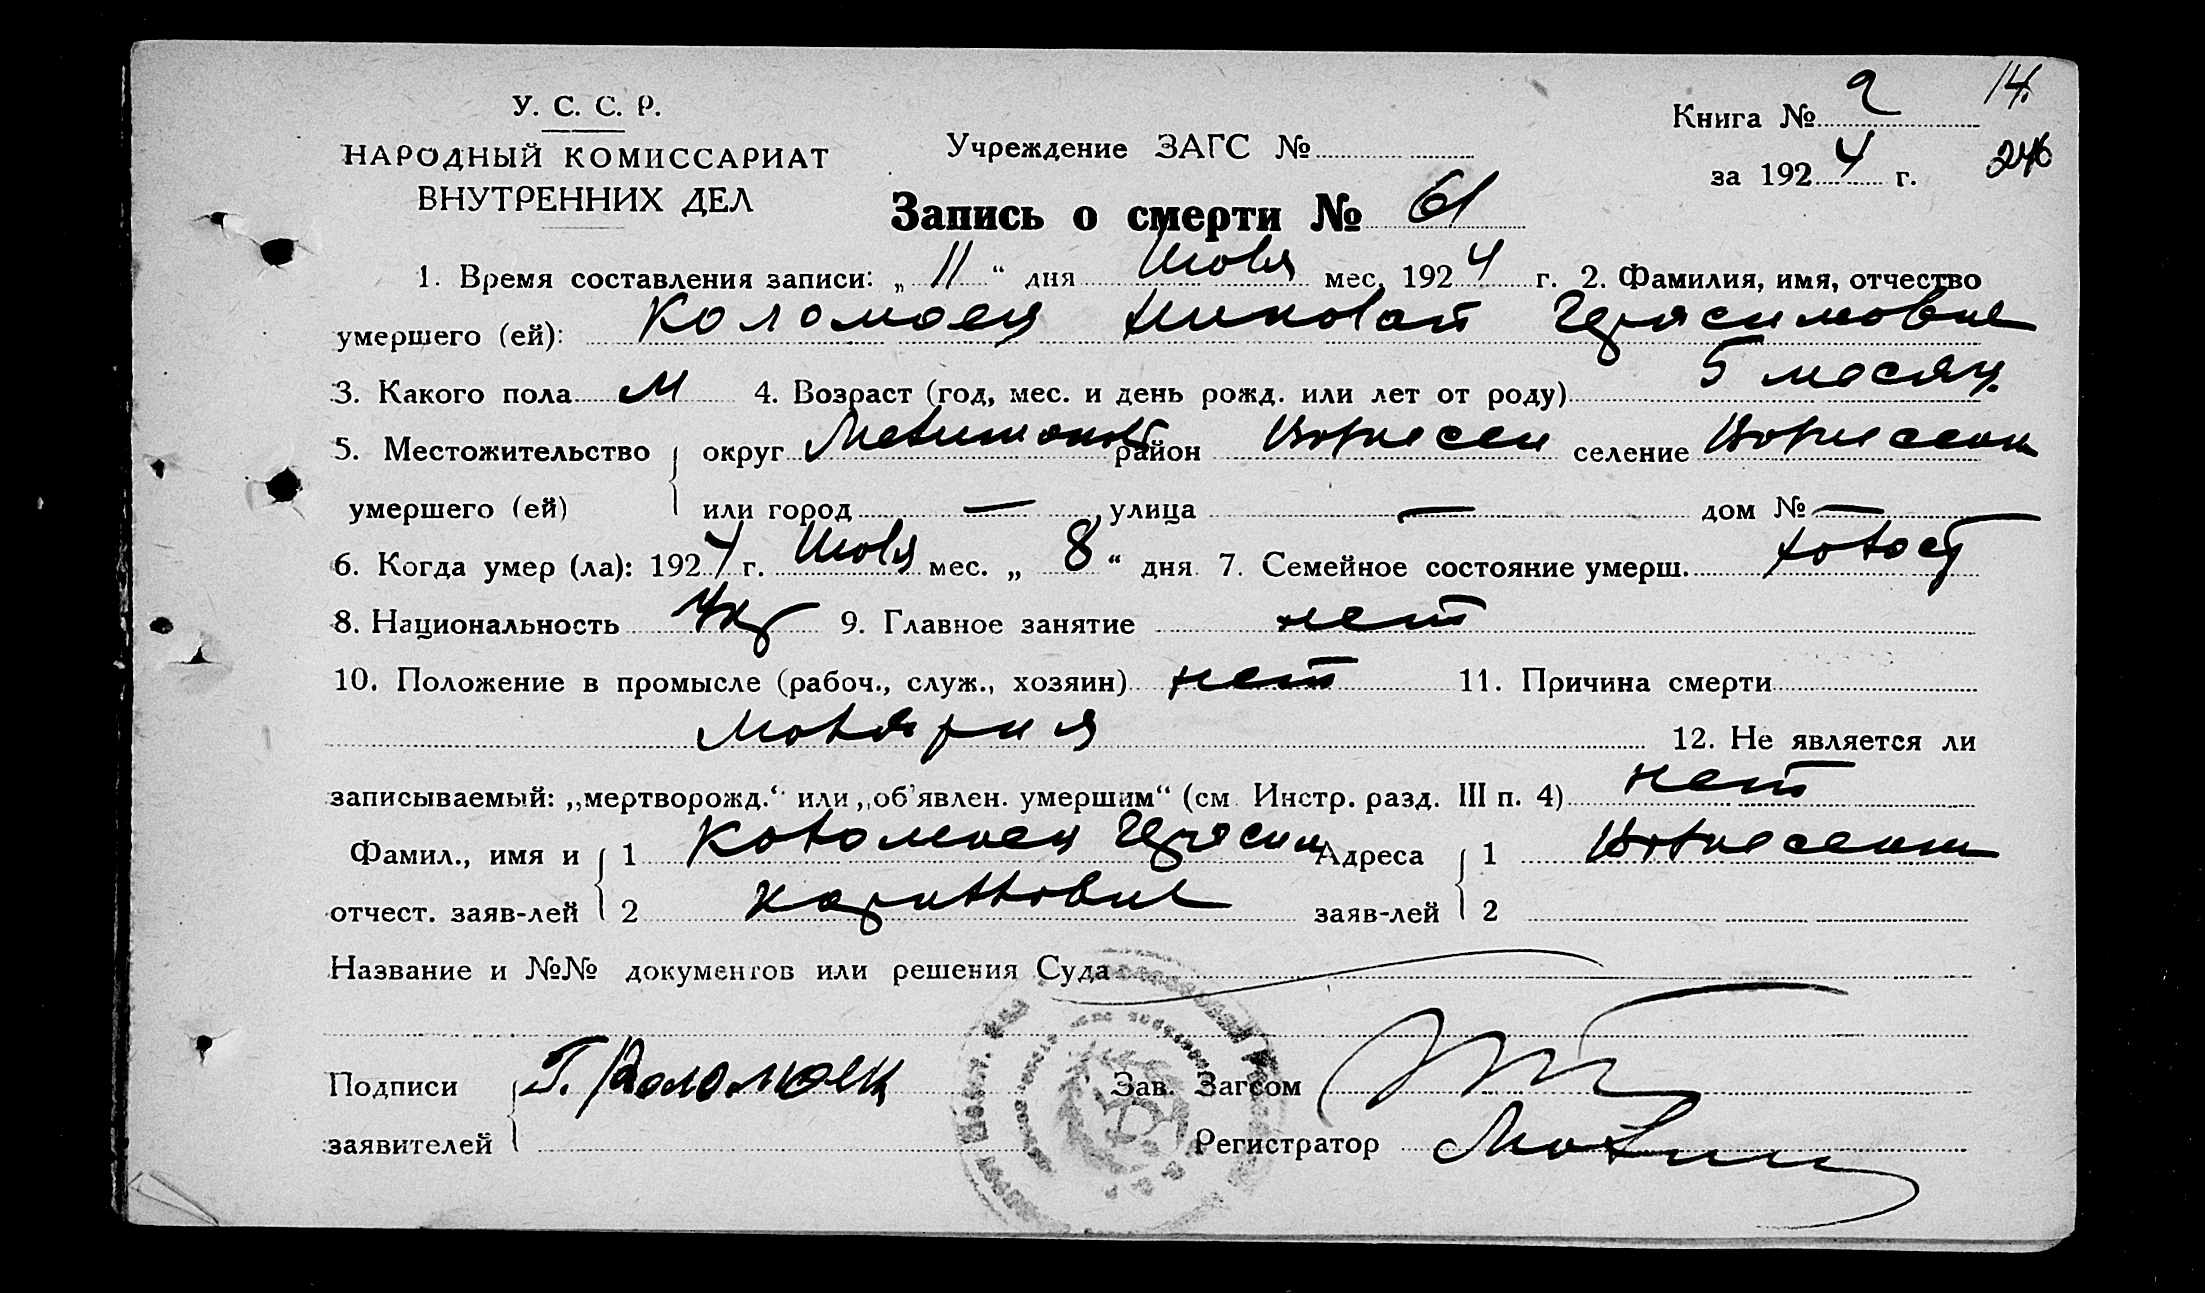 14.
Книга № 2
У. С. С. Р.
НАРОДНЫЙ КОМИССАРИАТ
ВНУТРЕННИХ ДЕЛ
Учреждение ЗАГС №
за 1924 г.
246
Запись о смерти № 61
1. Время составления записи: „ 11 “ дня Июля мес. 1924 г. 2. Фамилия, имя, отчество
умершего (ей): Коломоец Николай Герасимович
3. Какого пола М 4. Возраст (год, мес. и день рожд. или лет от роду) 5 месяц.
5. Местожительство округ район Вознесен селение Вознесенк
умершего (ей) или город — улица — дом № —
6. Когда умер (ла): 1924 г. Июля мес. „ 8 “ дня 7. Семейное состояние умерш. холост
8. Национальность Укр 9. Главное занятие нет
10. Положение в промысле (рабоч., служ., хозяин) нет 11. Причина смерти
Молярия 12. Не является ли
записываемый: „мертворожд.“ или „об'явлен. умершим“ (см. Инстр. разд. III п. 4) нет
Фамил., имя и 1 Коломоец Герасим Адреса 1 Вознесенк
отчест. заяв-лей 2 заяв-лей 2
Название и №№ документов или решения Суда
Подписи Г. Коломоец Зав. Загсом
заявителей Регистратор